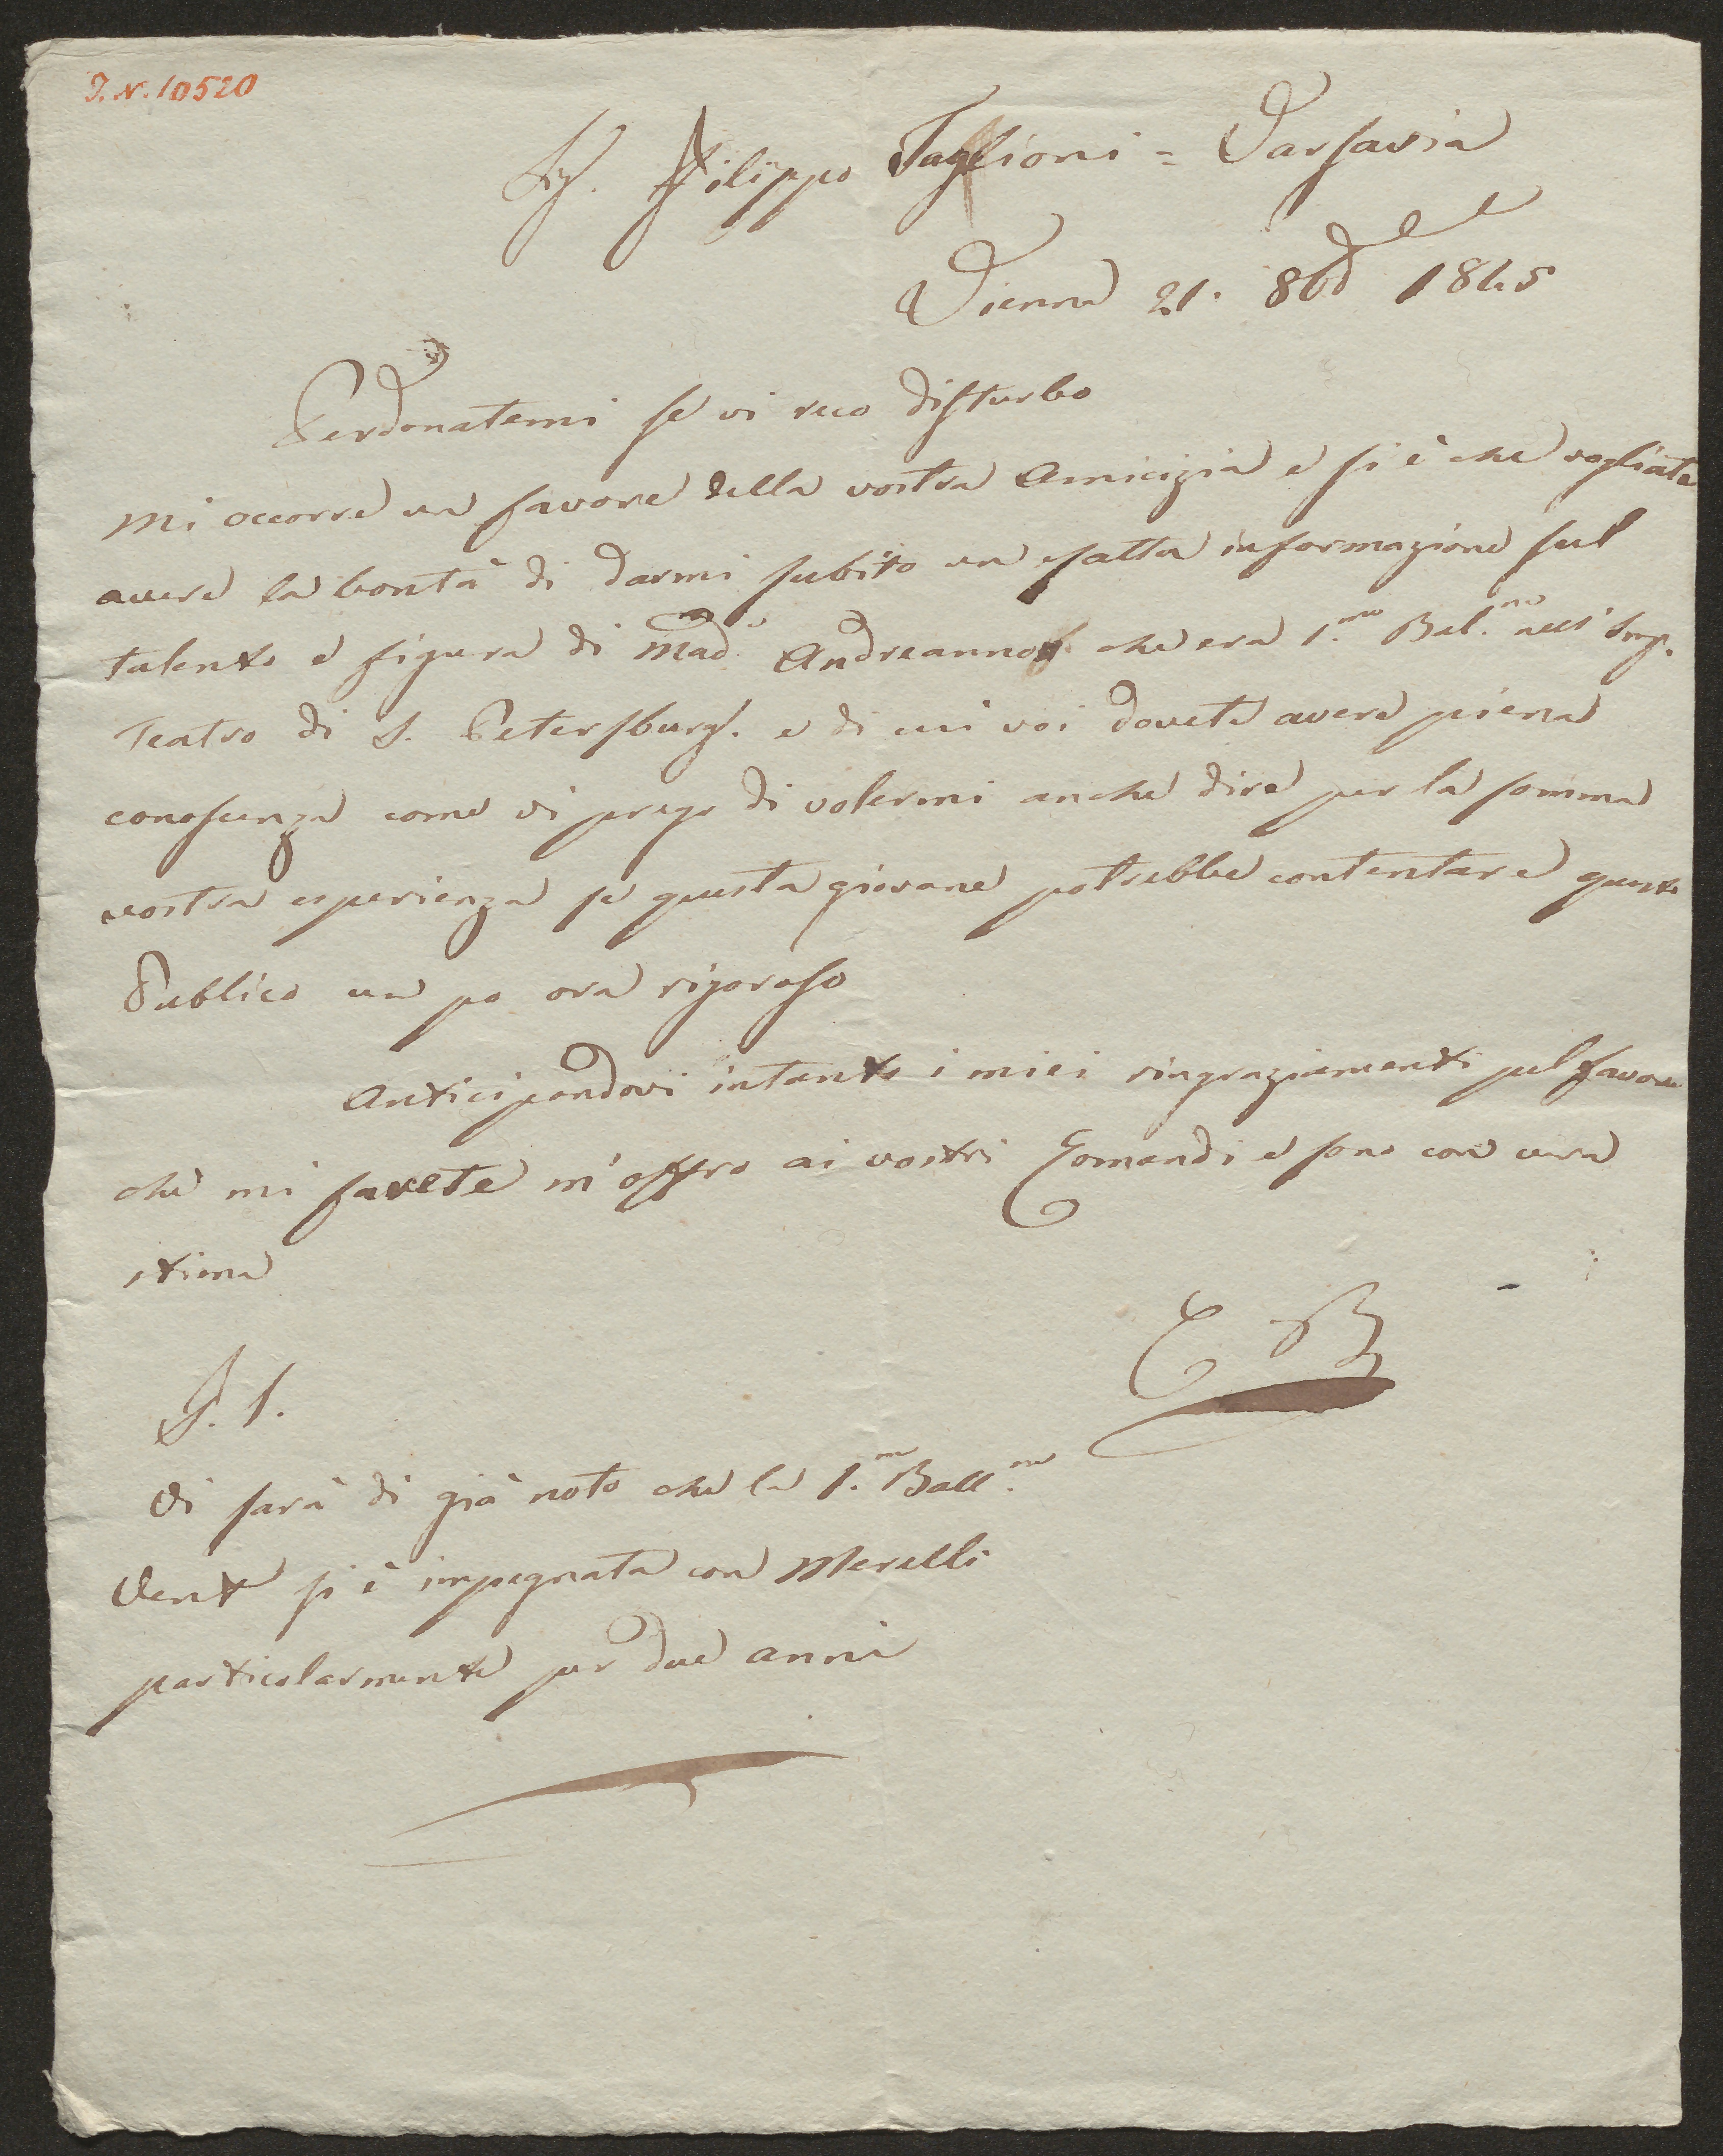 I.N. 10520
Sig. Filippo Taglioni = Varsavia
Vienna 21. 8bre 1845
Perdonatemi se vi reco disturbo
Mi occorre un favore della vostra Amicizia e si è che vogliate
avere la bontà di darmi subito un esatta informazione sul
talento e figura di Mad.e Andreanno che era 1.ma Bal.na all' Imp.
Teatro di S. Petersburg. e di cui voi dovete avere piena
conoscenza come vi prego di volermi anche dire per la somma
vostra esperienza se questa giovane potrebbe contentare questo
Publico un po ora rigoroso
Anticipandovi intanto i miei ringraziamenti pel favore
che mi farete m'offro ai vostri Comandi e sono con vera
stima
C B
P. S.
Vi sarà di già noto che la 1.ma Ball.na
Vent si è impegnata con Merelli
particolarmente per due anni